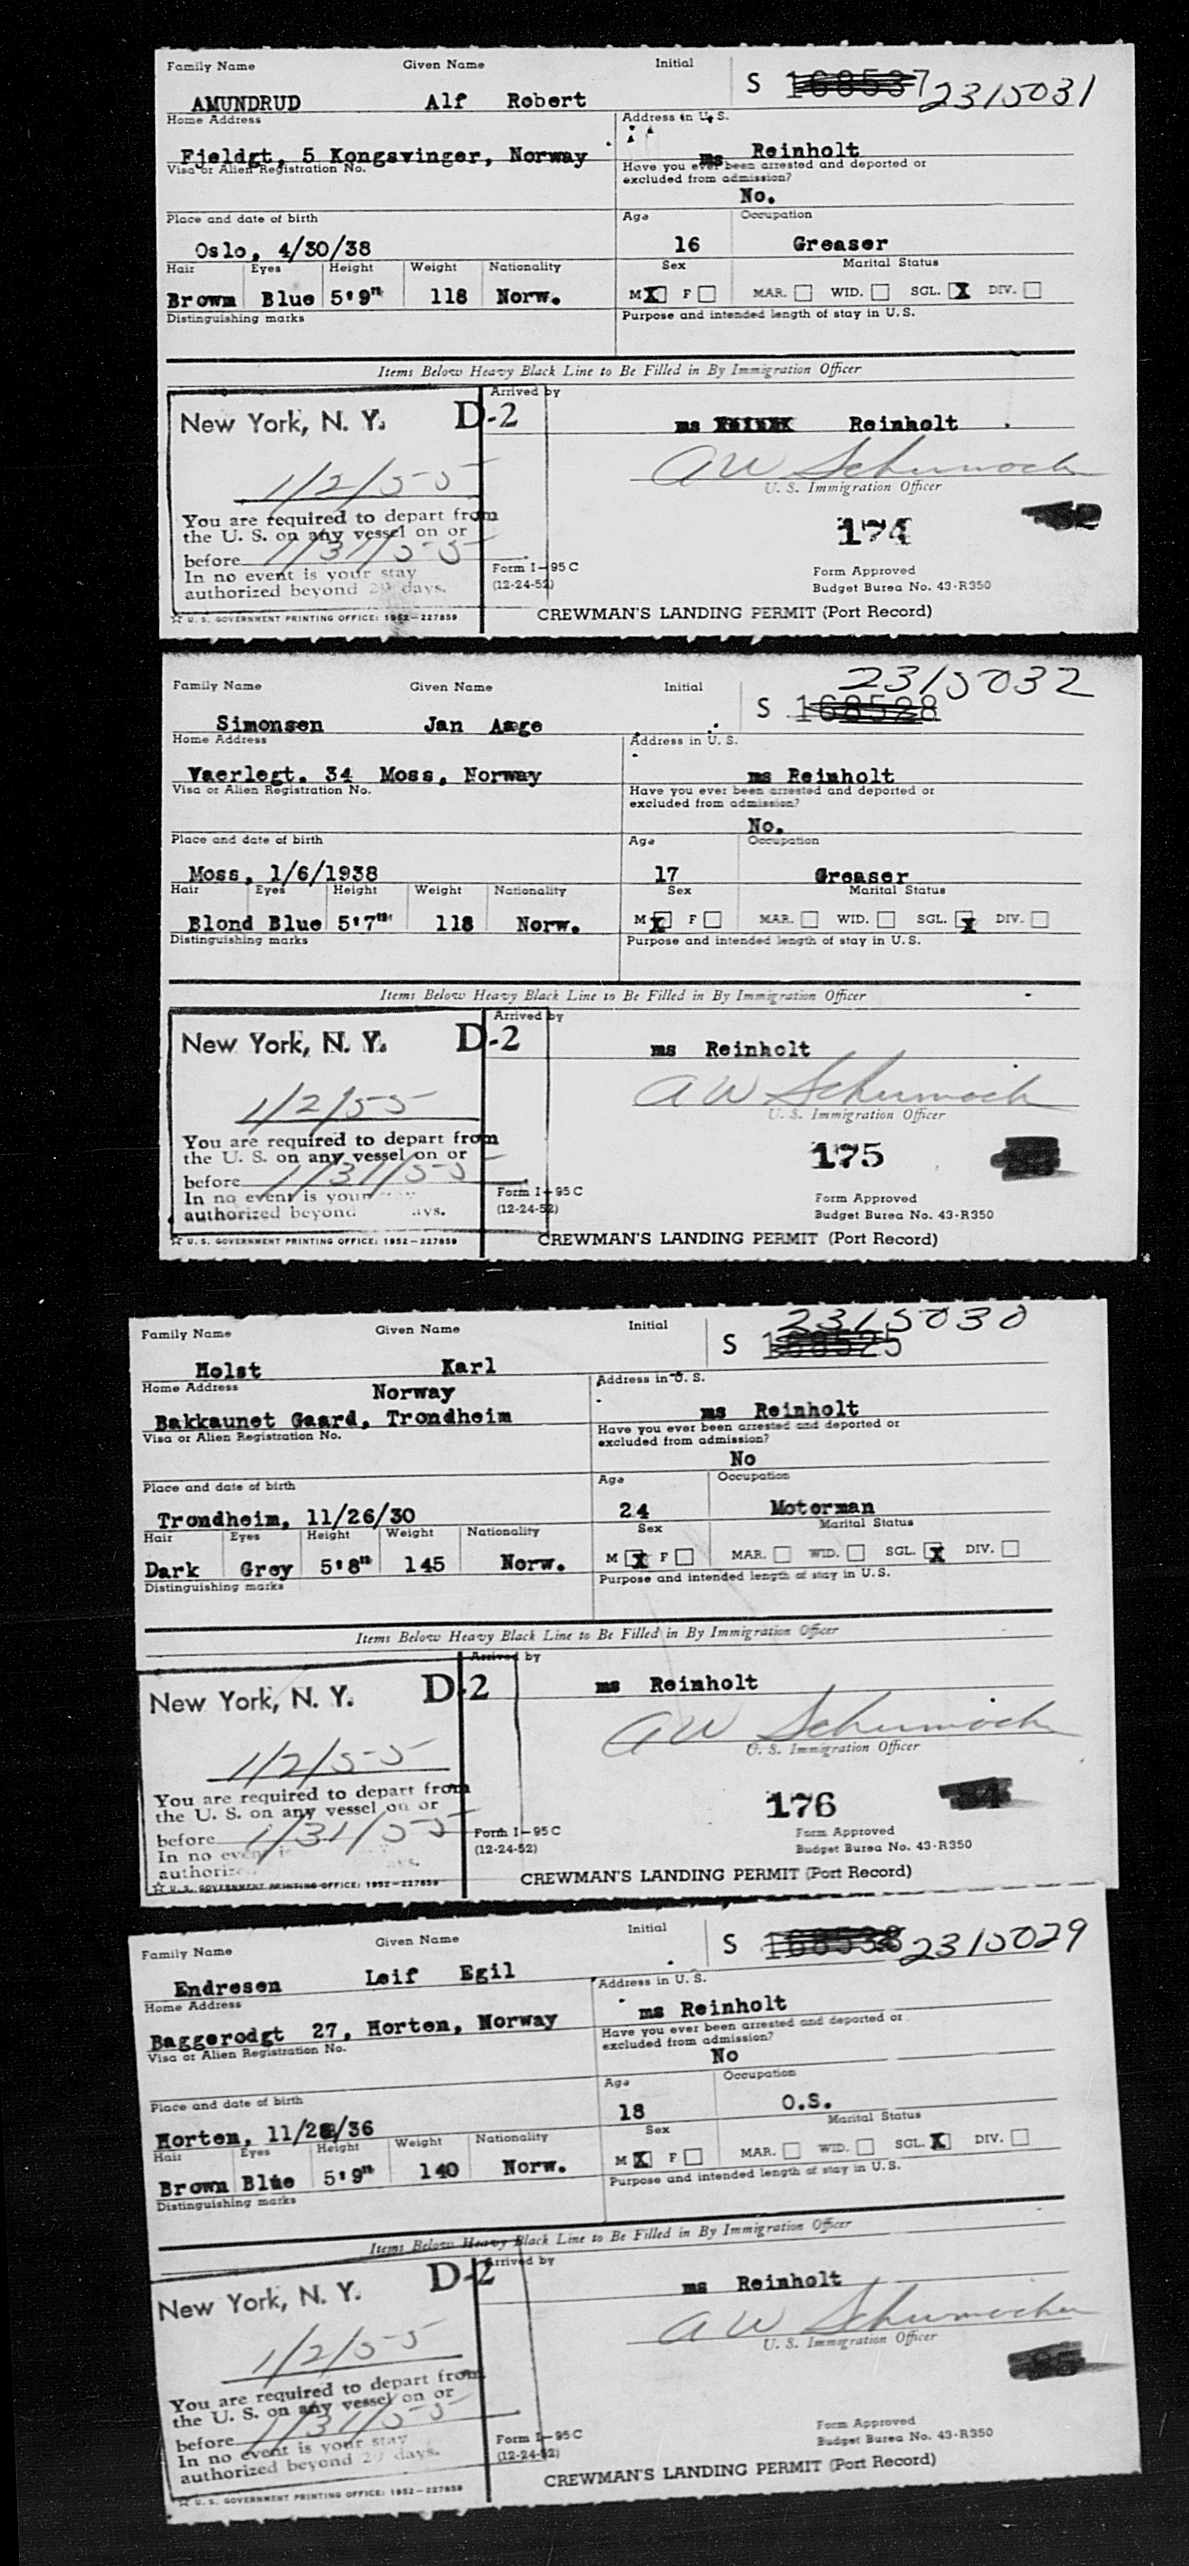 Family Name Given Name Initial
S 168537 2315031
AMUNDRUD Alf Robert
Home Address Address in U. S.
Fjeldgt, 5 Kongsvinger, Norway ms Reinholt
Visa or Alien Registration No. Have you ever been arrested and deported or
excluded from admission?
No.
Place and date of birth Age Occupation
Oslo, 4/30/38 16 Greaser
Hair Eyes Height Weight Nationality Sex Marital Status
Brown Blue 5'9" 118 Norw. M X F MAR. WID. SGL. X DIV.
Distinguishing marks Purpose and intended length of stay in U.S.
Items Below Heavy Black Line to Be Filled in By Immigration Officer
Arrived by
New York, N. Y. D-2 ms Reinholt
1/2/55 A W Schumach
U. S. Immigration Officer
You are required to depart from
the U. S. on any vessel on or 174
before 1/31/55
In no event is your stay Form I-95C Form Approved
authorized beyond 29 days. (12-24-52) Budget Burea No. 43-R350
☆ U. S. GOVERNMENT PRINTING OFFICE: 1952-227859 CREWMAN'S LANDING PERMIT (Port Record)
2315032
Family Name Given Name Initial
S 168528
Simonsen Jan Aage
Home Address Address in U. S.
Vaerlegt. 34 Moss, Norway ms Reinholt
Visa or Alien Registration No. Have you ever been arrested and deported or
excluded from admission?
No.
Place and date of birth Age Occupation
Moss, 1/6/1938 17 Greaser
Hair Eyes Height Weight Nationality Sex Marital Status
Blond Blue 5'7" 118 Norw. M X F MAR. WID. SGL. X DIV.
Distinguishing marks Purpose and intended length of stay in U.S.
Items Below Heavy Black Line to Be Filled in By Immigration Officer
Arrived by
New York, N. Y. D-2 ms Reinholt
1/2/55 A W Schumach
U. S. Immigration Officer
You are required to depart from
the U. S. on any vessel on or 175
before 1/31/55
In no event is your Form I-95C Form Approved
authorized beyond (12-24-52) Budget Burea No. 43-R350
☆ U. S. GOVERNMENT PRINTING OFFICE: 1952-227859 CREWMAN'S LANDING PERMIT (Port Record)
2315030
Family Name Given Name Initial
S 168525
Holst Karl
Home Address Norway Address in U. S.
Bakkaunet Gaard, Trondheim ms Reinholt
Visa or Alien Registration No. Have you ever been arrested and deported or
excluded from admission?
No
Place and date of birth Age Occupation
Trondheim, 11/26/30 24 Motorman
Hair Eyes Height Weight Nationality Sex Marital Status
Dark Grey 5'8" 145 Norw. M X F MAR. WID. SGL. X DIV.
Distinguishing marks Purpose and intended length of stay in U.S.
Items Below Heavy Black Line to Be Filled in By Immigration Officer
Arrived by
New York, N. Y. D-2 ms Reinholt
1/2/55 A W Schumach
U. S. Immigration Officer
You are required to depart from
the U. S. on any vessel on or 176
before 1/31/55 Form I-95C Form Approved
In no event (12-24-52) Budget Burea No. 43-R350
CREWMAN'S LANDING PERMIT (Port Record)
☆ U. S. GOVERNMENT PRINTING OFFICE: 1952-227859
Family Name Given Name Initial
S 168538 2315029
Endresen Leif Egil
Home Address Address in U. S.
Baggerodgt 27, Horten, Norway ms Reinholt
Visa or Alien Registration No. Have you ever been arrested and deported or
excluded from admission?
No
Place and date of birth Age Occupation
Horten, 11/28/36 18 O.S.
Hair Eyes Height Weight Nationality Sex Marital Status
Brown Blue 5'9" 140 Norw. M X F MAR. WID. SGL. X DIV.
Distinguishing marks Purpose and intended length of stay in U.S.
Items Below Heavy Black Line to Be Filled in By Immigration Officer
Arrived by
New York, N. Y. D-2 ms Reinholt
1/2/55 A W Schumacher
U. S. Immigration Officer
You are required to depart from
the U. S. on any vessel on or
before 1/31/55 Form I-95C Form Approved
In no event is your stay (12-24-52) Budget Burea No. 43-R350
authorized beyond 29 days.
☆ U. S. GOVERNMENT PRINTING OFFICE: 1952-227859 CREWMAN'S LANDING PERMIT (Port Record)